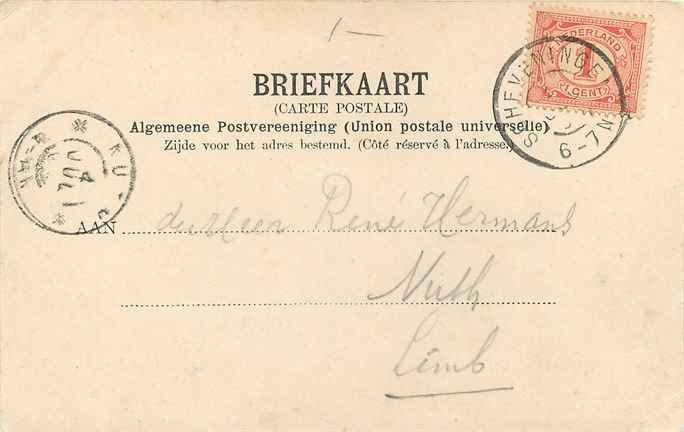 1—
NEDERLAND
1
CENT
SCHEVENINGEN
6-7N
BRIEFKAART
(CARTE POSTALE)
Algemeene Postvereeniging (Union postale universelle)
Zijde voor het adres bestemd. (Côté réservé à l'adresse.)
AAN den Heer René Hermans
Nuth
Limb